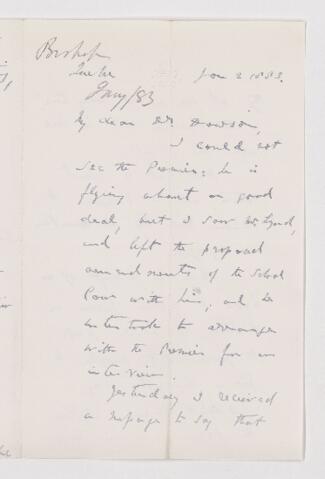 Bishop
Quebec
Jany/83
Jan 2 1883.
My dear Dr. Dawson,
I could not
see the Premier; he is
flying about a good
deal, but I saw Mr. Lynch,
and left the proposed
amendments of the School
Law with him, and he
undertook to arrange
with the Premier for an
interview.
Yesterday I received
a message to say that